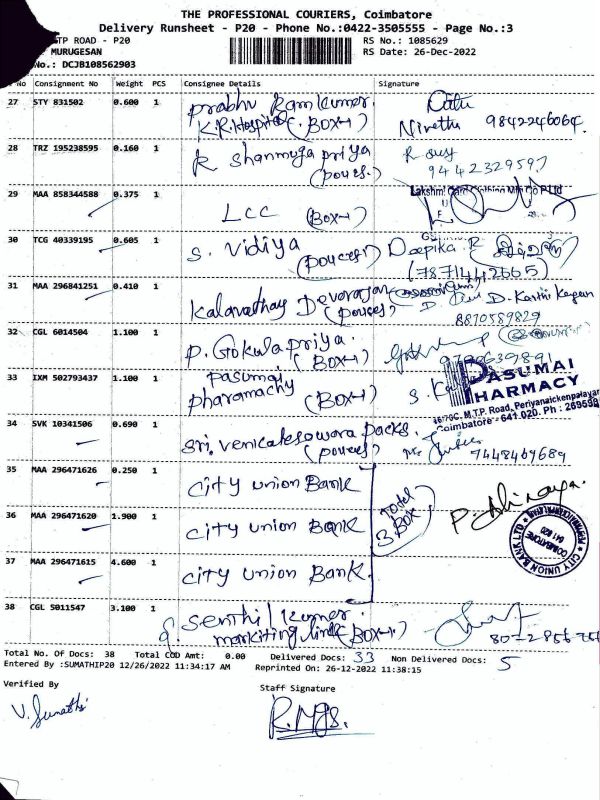 THE PROFESSIONAL COURIERS, Coimbatore
Delivery Runsheet - P20 - Phone No.:0422-3505555 - Page No.:3
TP ROAD - P20
RS No.: 1085629
MURUGESAN
RS Date: 26-Dec-2022
No.: DCJB108562903
No Consignment No Weight PCS Consignee Details Signature
27 STY 831502 0.600 1 prabhu Ramkumar.
K.R. Hospital (BOX-1) Nivethu 9842246064.
28 TRZ 195238595 0.160 1 R shanmuga priya
(pouces.) 9442329597
29 MAA 858344588 0.375 1 LCC (BOX-1)
30 TCG 40339195 0.605 1 S. Vidiya (pouces) Deepika. R
(7871442665)
31 MAA 296841251 0.410 1 Kalavathay Devarajan
(pouces) D. Karthi Kayan
8870559829
32 CGL 6014504 1.100 1 P. Gokulapriya.
(BOX-1)
33 IXM 502793437 1.100 1 Pasumai
pharamachy (BOX-1)
PASUMAI
PHARMACY
M.T.P. Road, Periyanaickenpalayam
Coimbatore - 641 020. Ph :
34 SVK 10341506 0.690 1 Sri. venkatesowara packs.
(pouces) 7448469689
35 MAA 296471626 0.250 1 City union Bank
36 MAA 296471620 1.900 1 City union Bank
Total
3 BOX
P. Abinaya.
CITY UNION BANK LTD
COIMBATORE
641 020
37 MAA 296471615 4.600 1 City union Bank.
38 CGL 5011547 3.100 1 Senthil Kumar.
markiting line (BOX-1)
Total No. Of Docs: 38 Total COD Amt: 0.00 Delivered Docs: 33 Non Delivered Docs: 5
Entered By :SUMATHIP20 12/26/2022 11:34:17 AM Reprinted On: 26-12-2022 11:38:15
Verified By
Staff Signature
V. Sumathi
R. Mgs.